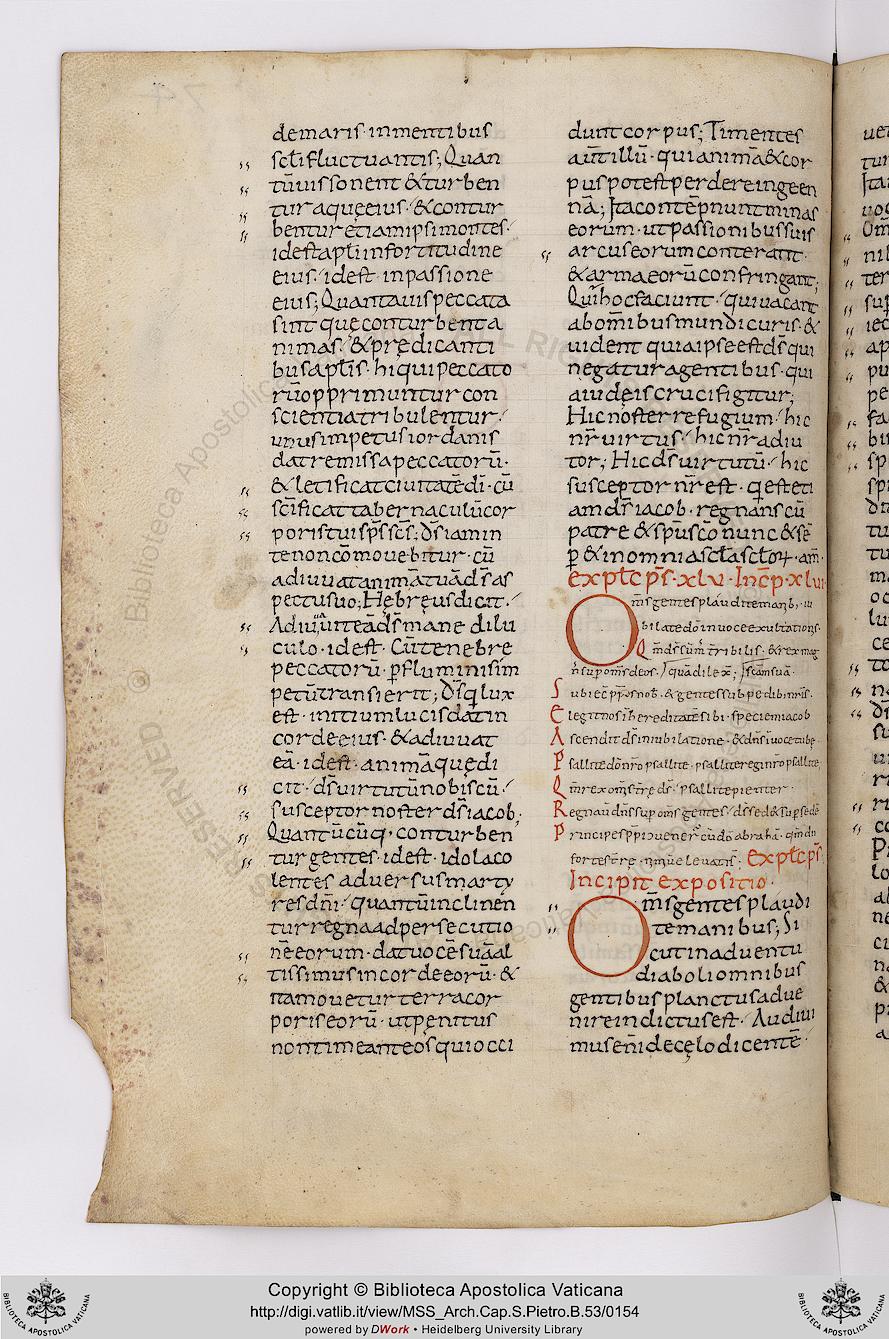 demaris · inmentibus
sc̄i fluctuantis; Quan
tū uis sonent & turben
tur aquę eius · & contur
bentur etiam ipsi montes ·
id est apłi in fortitudine
eius · id est in passione
eius; Quanta uis peccata
sint que conturbent a
nimas · & prędicanti
bus apłis · hi qui peccato
rū opprimuntur con
scientia tribulentur ·
unus impetus iordanis
dat remissa peccatorū ·
& letificat ciuitatē dī · cū
sc̄ificat tabernaculū cor
poris tui sp̄s sc̄s; d̄s iam in
te non cōmouebitur · cū
adiuuat animā tuā d̄s as
pectu suo; Hębręus dicit ·
Adiuuit eā d̄s mane dilu
culo · id est · Cū tenebre
peccatorū · p̱ fluminis im
petū transierit; D̄s q̇ lux
est · initium lucis dat in
corde eius · & adiuuat
eā · id est · animā quę di
cit · d̄s uirtutū nobiscū ·
susceptor noster d̄s iacob;
Quantūcūq · conturben
tur gentes · id est · idola co
lentes aduersus marty
res dn̄i · quantū inclinen
tur regna ad persecutio
nē eorum · dat uocē suā al
tissimus in corde eorū · &
ita mouetur terra cor
poris eorū · ut penitus
non timeant eos qui occi
dunt corpus; Timentes
aut̄ illū · qui animā & cor
pus potest perdere in geen
nā; Ita contēpnunt minas
eorum · ut passionibus suis
arcus eorum conterant ·
& arma eorū confringant;
Qui hoc faciunt · qui uacant
ab om̄ibus mundi curis · &
uident quia ipse est d̄s qui
negatur a gentibus · qui
a iudeis crucifigitur;
Hic noster refugium · hic
nr̄ uirtus · hic nr̄ adiu
tor; Hic d̄s uirtutū · hic
susceptor nr̄ est · q̇ est eti
am d̄s iacob · regnans cū
patre & sp̄u sc̄o nunc & sē
p̱ & in omnia scła scłoꝝ · am̄ ·
Expłc ps̄ · xlv · Inc̄p · xlvi
Om̄s gentes plaudite manib;
iubilate dō in uoce exultationis ·
Qm̄ d̄s sūm̄ tribilis · & rex mag
n̄ sup om̄s deos · quā dilex̄;
Subiec̄ pplos nob̄ · & gentes sub pedibus nr̄is ·
Elegit nos ih̄ hereditatē sibi · speciem iacob
Ascendit d̄s in iubilatione · & dn̄s i uoce tube ·
Psallite dō nr̄o psallite · psallite regi nr̄o psallite
Qm̄ rex om̄s tr̄e d̄s · psallite pienter ·
Regnau̅ dn̄s sup om̄s gentes · d̄s sed̄ & sup sedē
Principes ppli 9uener̄ cū dō abrahā · qm̄ dii
fortes tr̄e · nimiu̅ eleuati s̄; Expłc ps̄
Incipit expositio ·
Om̄s gentes plaudi
te manibus; Si
cut in aduentu
diaboli omnibus
gentibus planctus adue
nire indictus est · Audiui
mus eni̅ de cęlo dicentē ·
Copyright © Biblioteca Apostolica Vaticana
http://digi.vatlib.it/view/MSS_Arch.Cap.S.Pietro.B.53/0154
powered by DWork • Heidelberg University Library